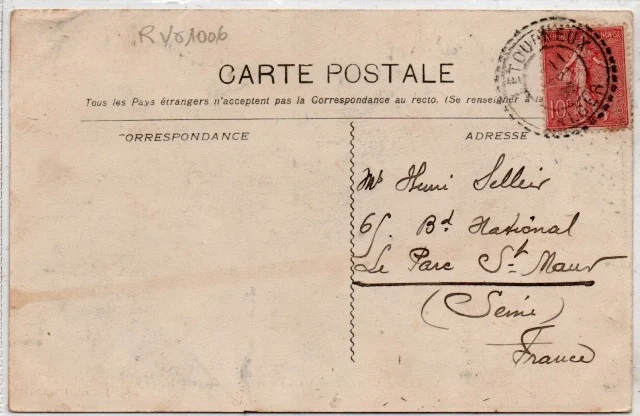 RV81006
CARTE POSTALE
Tous les Pays étrangers n'acceptent pas la Correspondance au recto. (Se renseigner à la
CORRESPONDANCE
ADRESSE
LETOURNEUX
ALGER
10
Mr Henri Sellier
65. Bd National
Le Parc St Maur
(Seine)
France